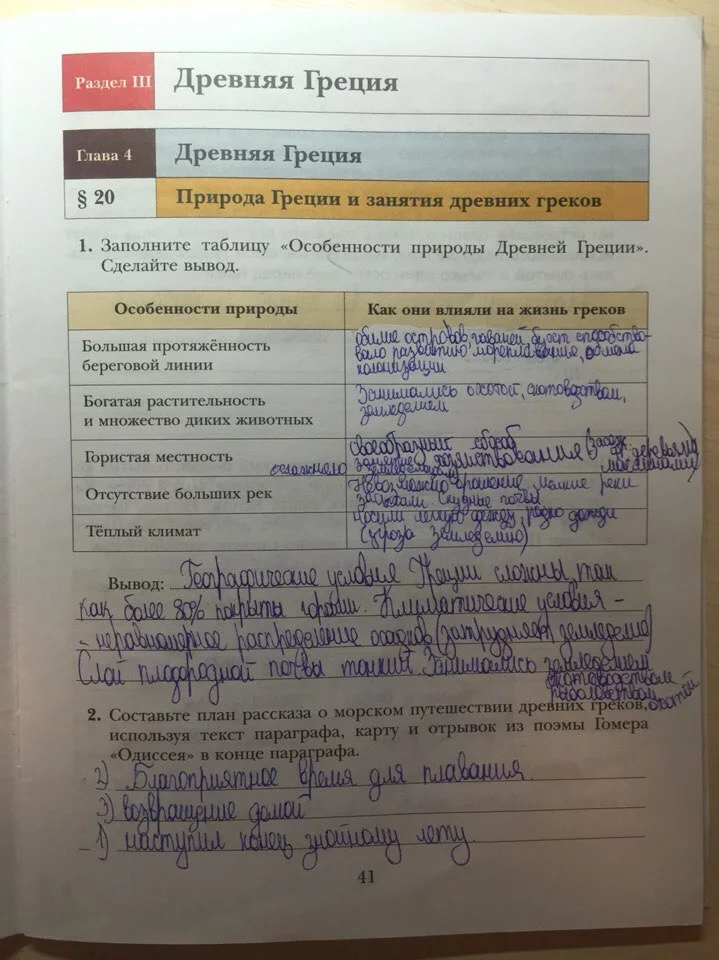 Раздел III Древняя Греция
Глава 4 Древняя Греция
§ 20 Природа Греции и занятия древних греков
1. Заполните таблицу «Особенности природы Древней Греции».
Сделайте вывод.
Особенности природы Как они влияли на жизнь греков
Большая протяжённость
береговой линии
обилие островов, гаваней, будет способство-
вало развитию мореплавания, обмена
колонизации
Богатая растительность
и множество диких животных
Занимались охотой, скотоводством,
земледелием
Гористая местность
своеобразный способ
хозяйствования
осложнено
маслинами)
Отсутствие больших рек
Невозможно орошение, мелкие реки
скудные почвы
Тёплый климат
носили легкую одежду, редко дожди
(угроза земледелию)
Вывод: Географические условия Греции сложны, так
как более 80% покрыты горами. Климатические условия -
- неравномерное распределение осадков (затрудняет земледелие)
Слой плодородной почвы тонкий. Занимались земледелием
скотоводством
рыболовством, охотой
2. Составьте план рассказа о морском путешествии древних греков,
используя текст параграфа, карту и отрывок из поэмы Гомера
«Одиссея» в конце параграфа.
2) Благоприятное время для плавания.
3) возвращение домой
1) наступил конец знойному лету.
41